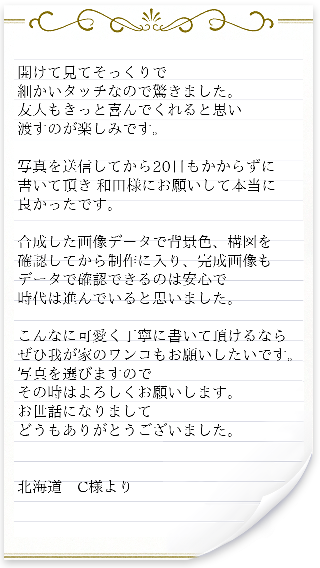 開けて見てそっくりで
細かいタッチなので驚きました。
友人もきっと喜んでくれると思い
渡すのが楽しみです。
写真を送信してから20日もかからずに
書いて頂き 和田様にお願いして本当に
良かったです。
合成した画像データで背景色、構図を
確認してから制作に入り、完成画像も
データで確認できるのは安心で
時代は進んでいると思いました。
こんなに可愛く丁寧に書いて頂けるなら
ぜひ我が家のワンコもお願いしたいです。
写真を選びますので
その時はよろしくお願いします。
お世話になりまして
どうもありがとうございました。
北海道　C様より